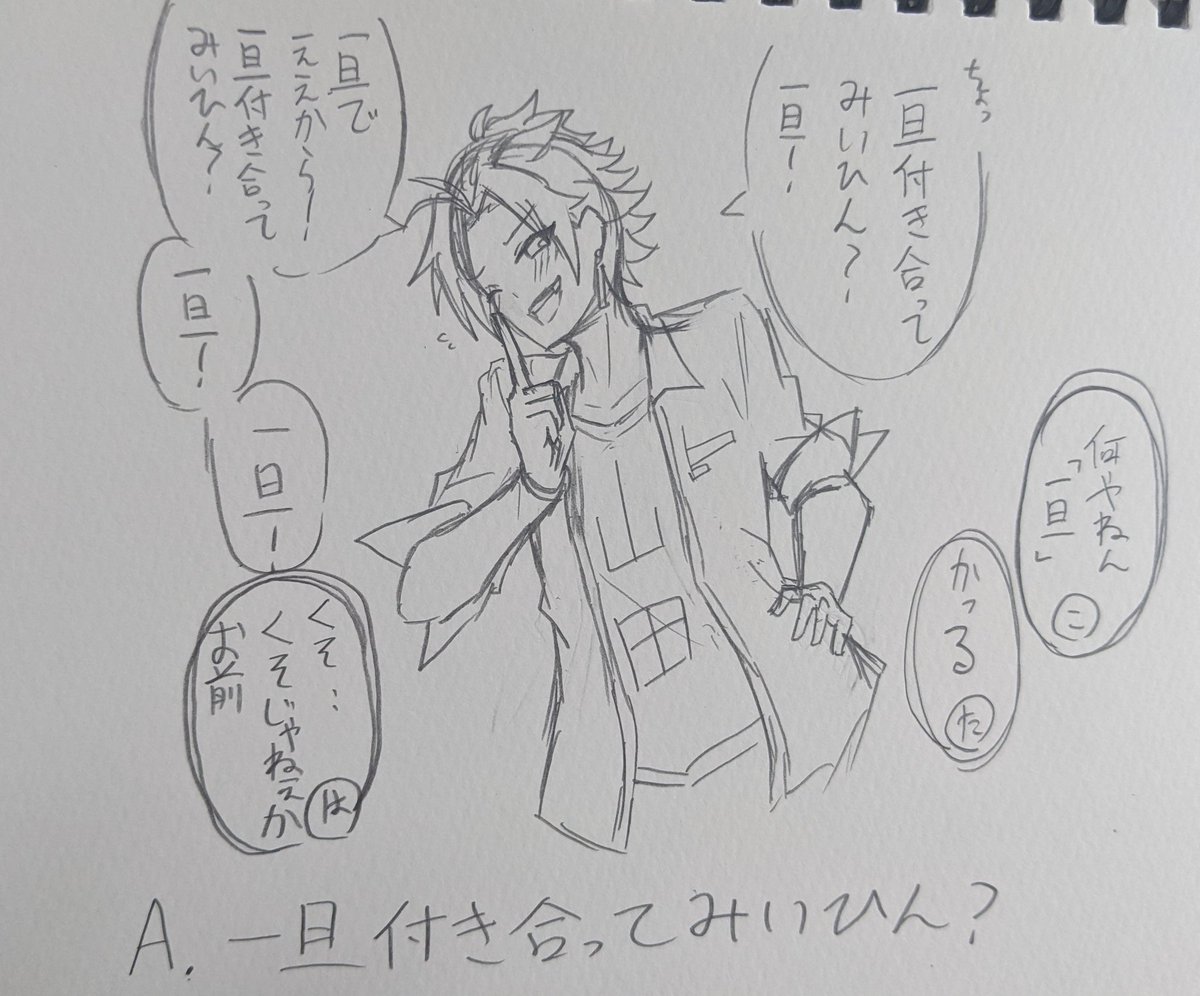 ちょっ
一旦付き合って
みいひん?
一旦!
一旦で
ええから!
一旦付き合って
みいひん?
一旦!
一旦!
何やねん
「一旦」
こ
かっる
た
くそ…
くそじゃねぇか
お前
は
山
田
A. 一旦付き合ってみいひん?